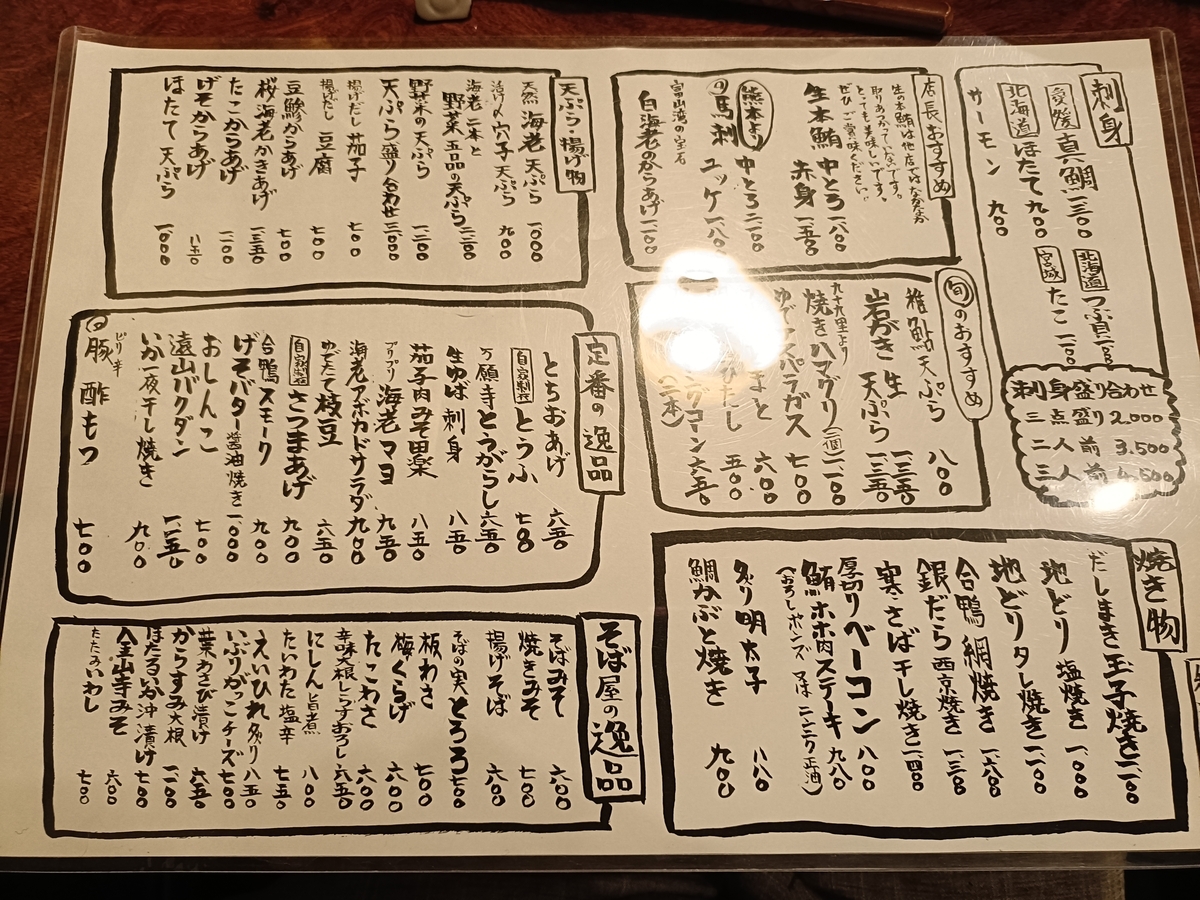 刺身
愛媛 真鯛 一三〇〇
北海道 ほたて 九〇〇
サーモン 九〇〇
北海道 つぶ貝
宮城 たこ 一一〇〇
刺身盛り合わせ
三点盛り 2.000
二人前 3.500
三人前
店長おすすめ
生の本鮪は他店ではなかなか
取りあつかってないです。
とっても美味しいです。
ぜひご賞味ください。
生本鮪 中とろ 一八〇〇
赤身 一五〇〇
中とろ 二一〇〇
熊本より
の馬刺 ユッケ 一八〇〇
富山湾の宝石
白海老のからあげ 一一〇〇
旬のおすすめ
稚鮎 天ぷら 八〇〇
岩がき 生 一三五〇
天ぷら 一三五〇
九十九里より
焼きハマグリ(二個) 一一〇〇
ゆでアスパラガス 七〇〇
六〇〇
ひたし 五〇〇
コーン 六五〇
(二本)
焼き物
だしまき玉子焼き 一一〇〇
地どり 塩焼き 一一〇〇
地どりタレ焼き 一一〇〇
合鴨 網焼き 一六〇〇
銀だら 西京焼き 一三〇〇
寒さば 干し焼き 一四〇〇
厚切りベーコン 八〇〇
鮪ホホ肉ステーキ 九八〇
(おろしポンズ 又は ニンニク正油)
炙り明太子 八八〇
鯛かぶと焼き 九〇〇
天ぷら・揚げ物
天然 海老 天ぷら 一〇〇〇
活け〆 穴子 天ぷら 九〇〇
海老二本と
野菜五品の天ぷら 二二〇〇
野菜の天ぷら 一二〇〇
天ぷら盛り合わせ 三〇〇〇
揚げだし 茄子 七〇〇
揚げだし 豆腐 七〇〇
豆鯵からあげ 七〇〇
桜海老かきあげ 一三五〇
たこからあげ 一一〇〇
げそからあげ 八五〇
ほたて 天ぷら 一〇〇〇
定番の逸品
とちおあげ 六五〇
自家製 とうふ 七〇〇
万願寺とうがらし 六五〇
生ゆば 刺身 八五〇
茄子肉みそ田楽 八五〇
プリプリ 海老マヨ 九五〇
海老アボカドサラダ 九〇〇
ゆでたて 枝豆 六五〇
自家製 さつまあげ 九〇〇
合鴨スモーク 九〇〇
げそバター醤油焼き 一〇〇〇
おしんこ 七〇〇
遠山バクダン 一一五〇
いか一夜干し焼き 九〇〇
ピリ辛
豚 酢もつ 七〇〇
そば屋の逸品
そばみそ 六〇〇
焼きみそ 七〇〇
揚げそば 六〇〇
そばの実 とろろ 七〇〇
板わさ 七〇〇
梅くらげ 六〇〇
たこわさ 六〇〇
辛味大根しらすおろし 六五〇
にしん 旨煮 八〇〇
たいわた 塩辛 七五〇
えいひれ 炙り 八五〇
いぶりがっこチーズ 七〇〇
葉わさび漬け 六五〇
からすみ大根 一一〇〇
ほたるいか沖漬け 七〇〇
金山寺みそ 六〇〇
たたみいわし 七〇〇